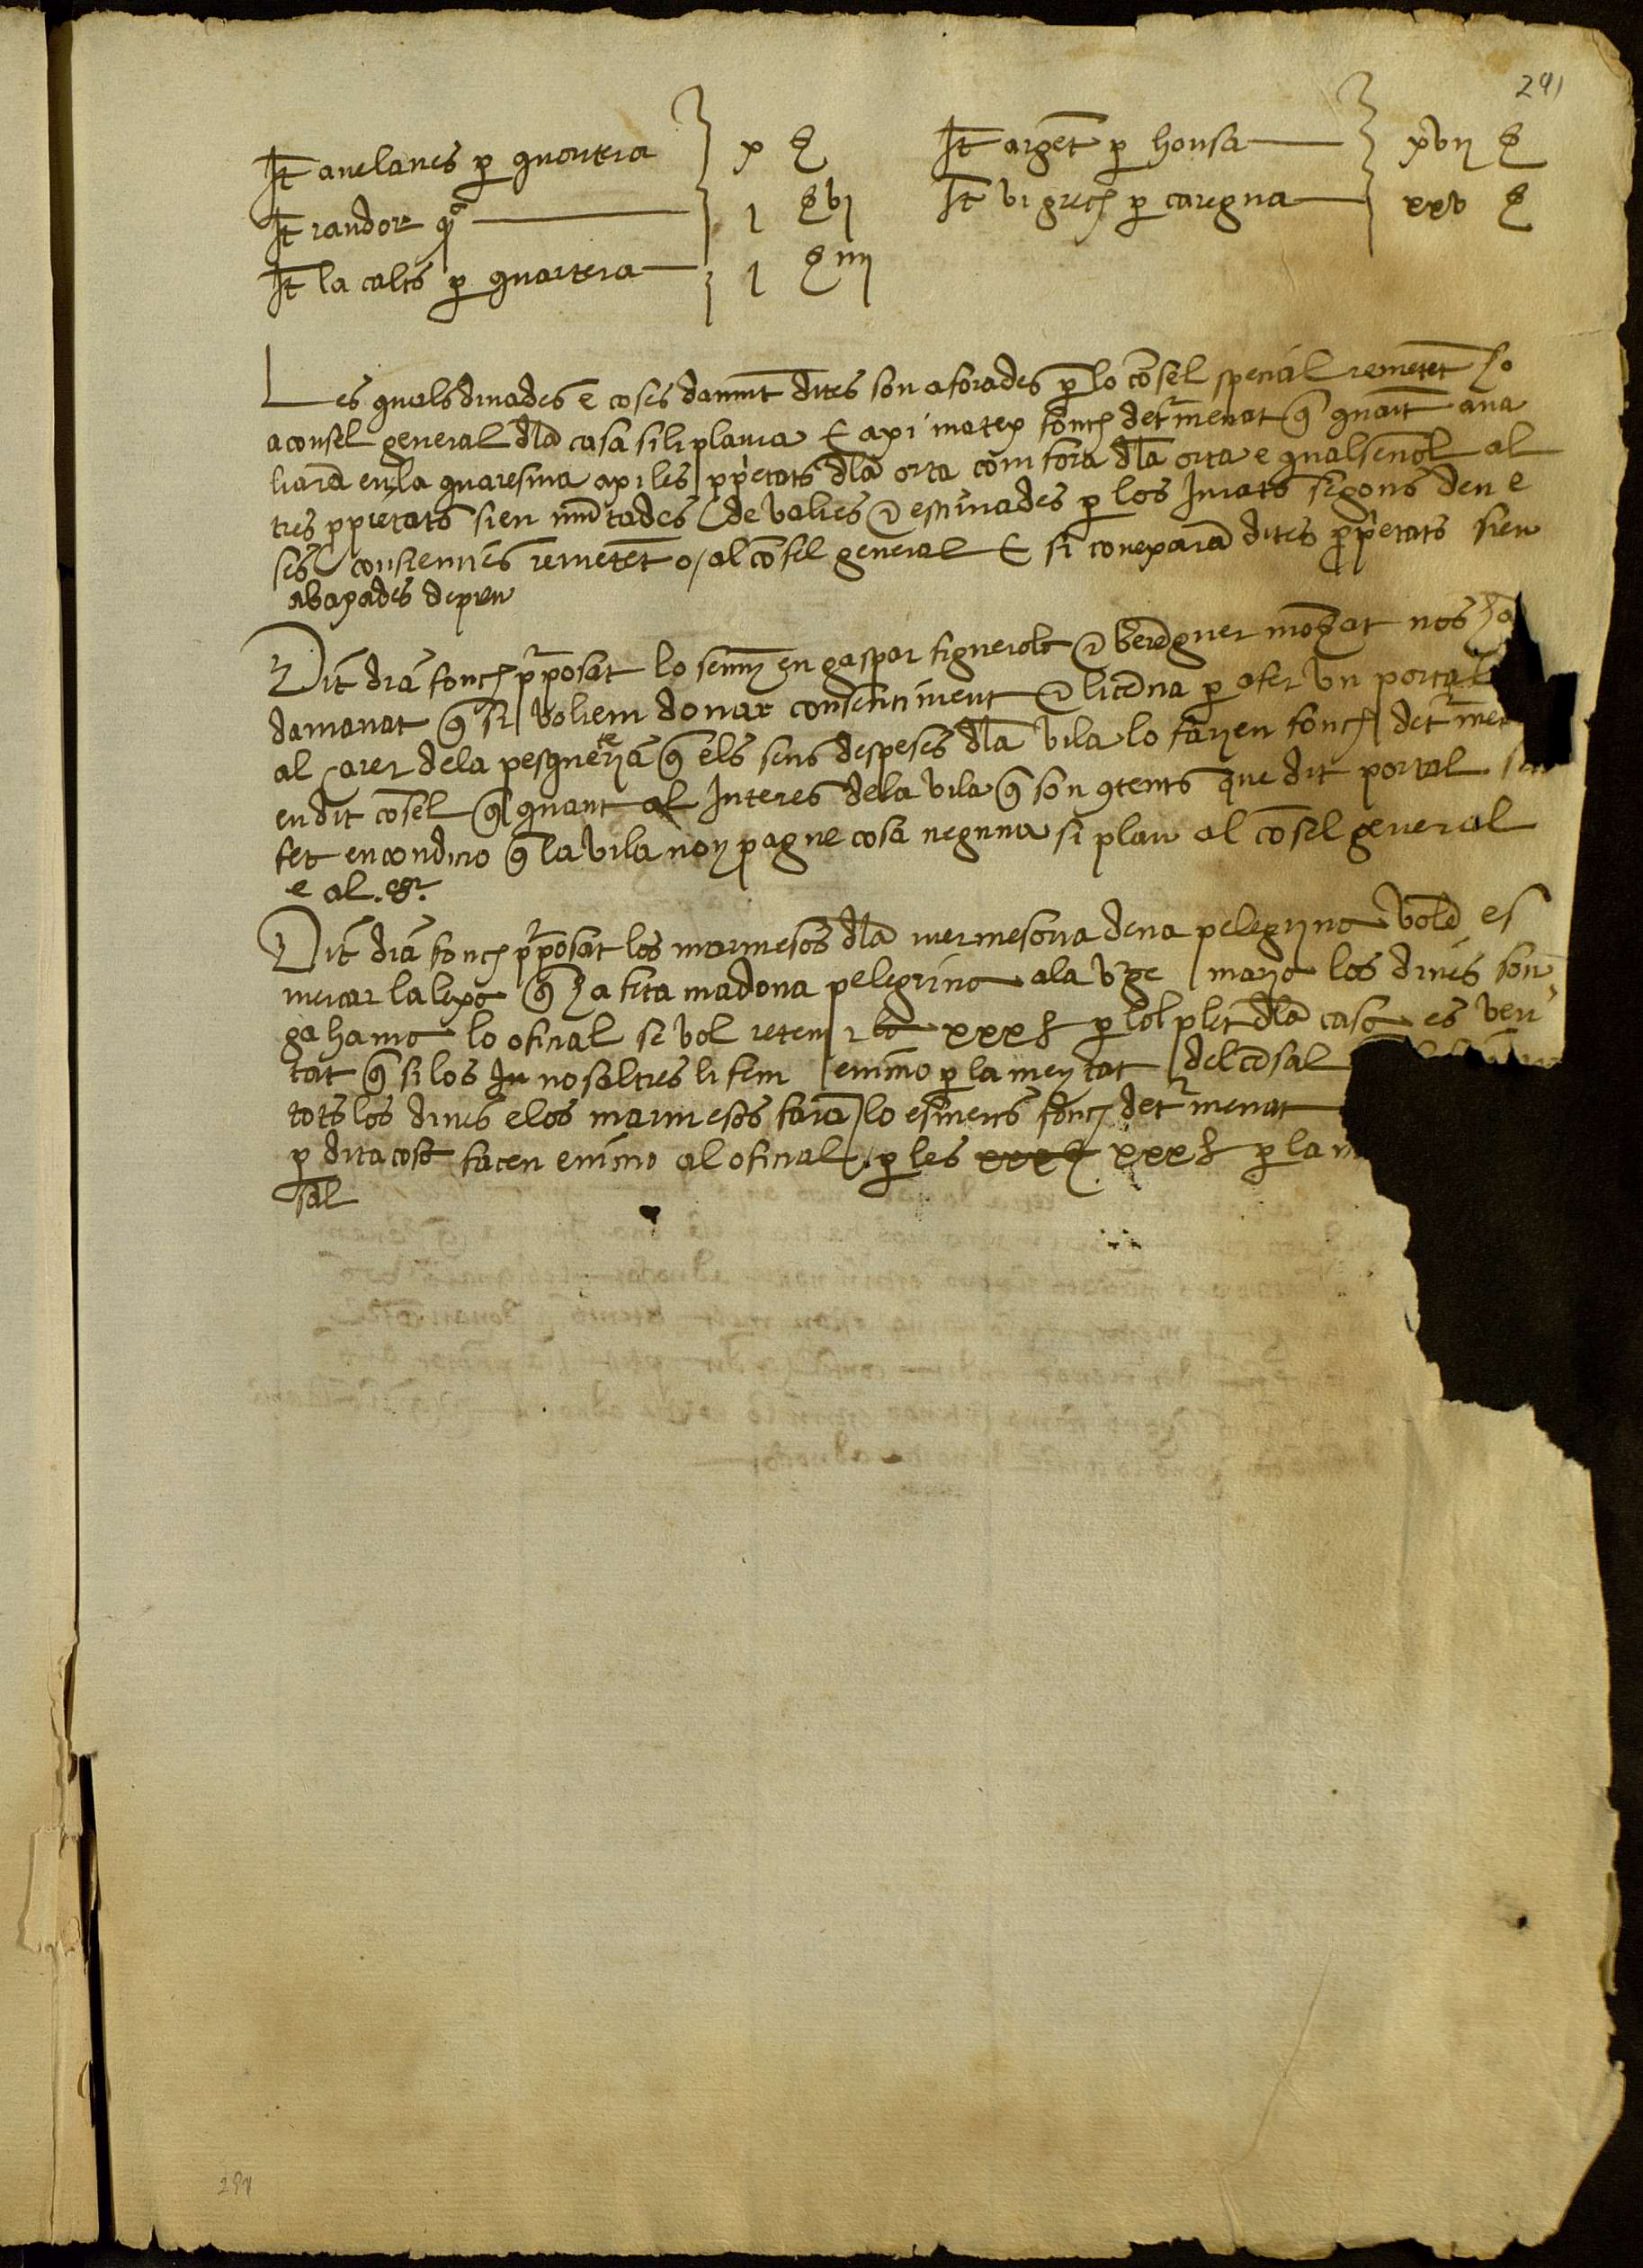 291
It avelanes per quartera x ß
It randor qrª j ß vj
It la cals per quartera j ß iiij
It argēt per honsa xvij ß
It vi grech per caregua xxv ß
Les quals dinades e coses damūt dites son aforades per lo cōsel special remetēt ho
a consel general dla casa si li plaura E axi matex fonch detrmenat q̄ quāt ava
liarā en la quaresma axi les ppietats dla orta com fora dla orta e qualsevol al
tres ppietats sien mūtades de valies e estimades per los Jurats sigons deu e
ses consiencies remetēt o al cōsel general E si conexarā dites ppietats sien
abaxades de preu
Dit dia fonch pposat lo senyer en gaspar figuerola e berēguer monsat nos ha
damanat q̄ si voliem donar consentiment e licēcia per a fer un portal
al carer de la pesqueria q̄ els sens despeses dla vila lo farien fonch detrme
en dit cōsel q̄ quant al Interes de la vila q̄ son contents que dit portal
fet en condicio q̄ la vila noy pague cosa neguna si plau al cōsel general
e al.sr.
Dit dia fonch pposat los marmesos dla mermesoria de na pelegrina volē es
mercar la lexa q̄ ha feta madona pelegrina a la vge maria los dines son
ga hama lo oficial se vol reteni xxx ß per lo plet dla casa es veri
tat q̄ si los nosaltres li fem per la meytat del cēsal
tots los dines e los marmesos farā lo esmers fonch detrmenat
per dita cosa facen al oficial per les xxx ß per la
sal
291